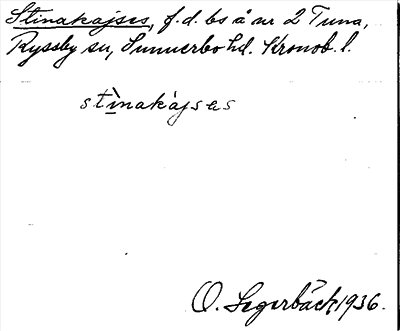 Stinakajses, f.d. bs å nr 2 Tuna,
Ryssby sn, Sunnerbo hd. Kronob. l.
stìnakàjsɐs
O. Segerbäck 1936.